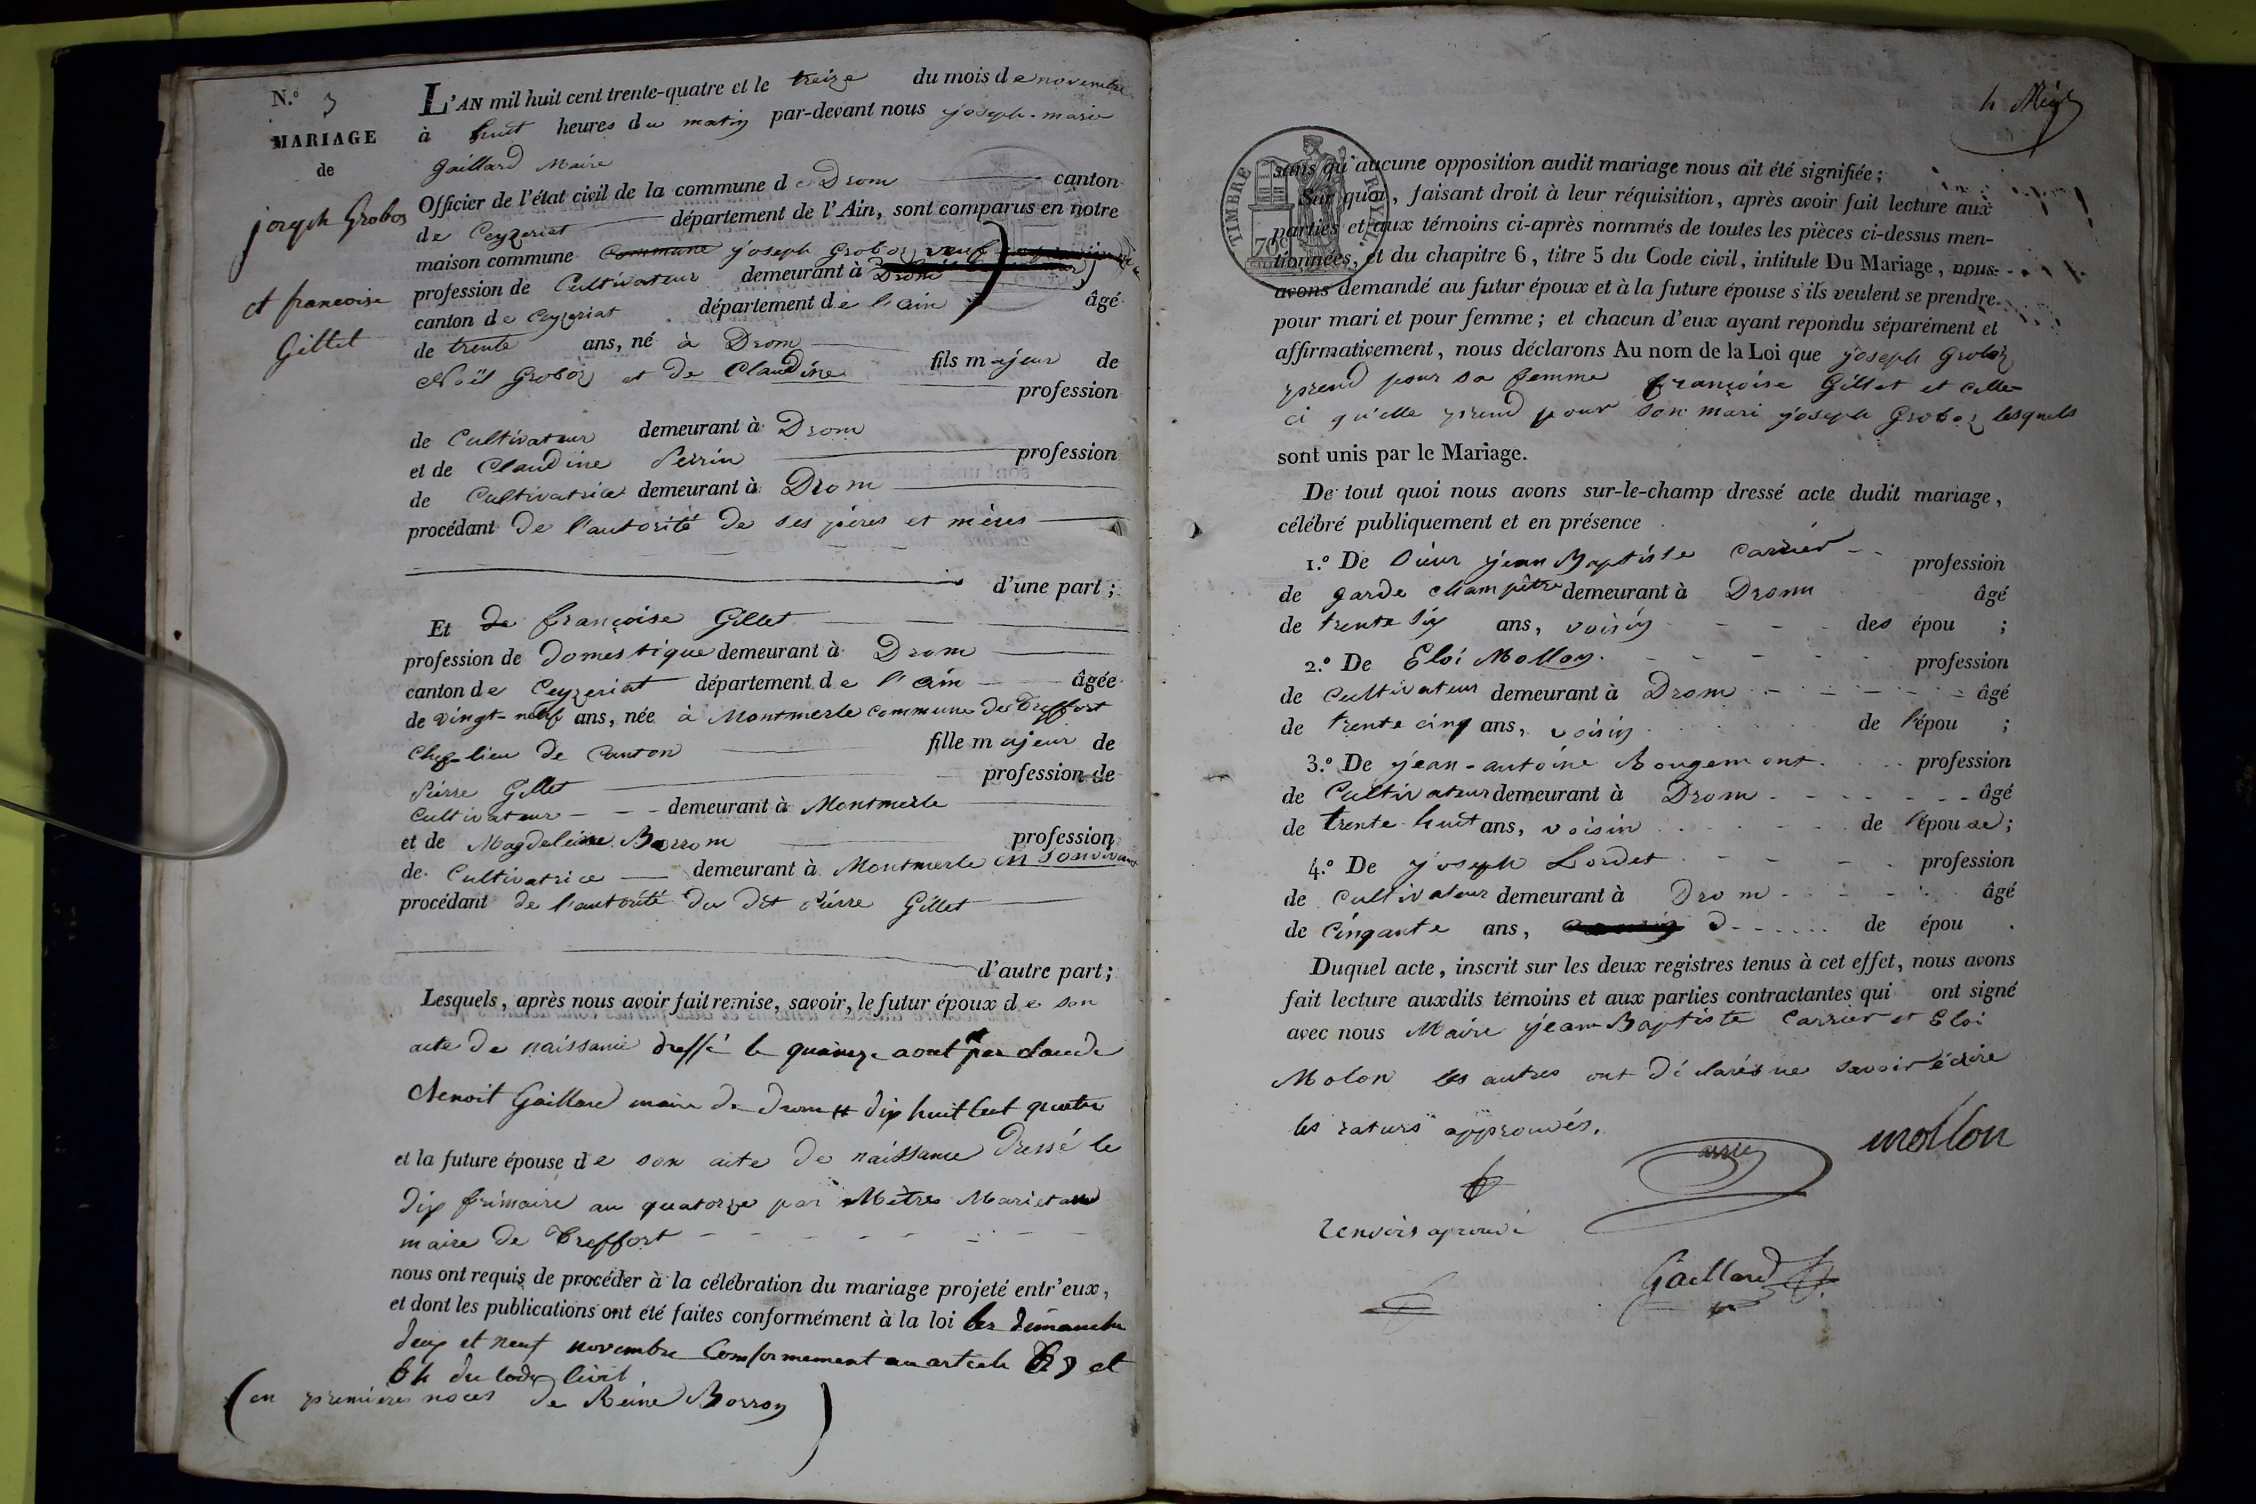 N.° 3
MARIAGE
de
joseph Grobos
et francoise
Gillet
L'AN mil huit cent trente-quatre et le treize du mois de novembre
à huit heures du matin par-devant nous joseph-marie
Gaillard Maire
Officier de l'état civil de la commune de Drom canton
de Ceyzeriat département de l'Ain, sont comparus en notre
maison commune commune joseph Groboz veuf
profession de Cultivateur demeurant à Drom
canton de Ceyzeriat département de l'ain âgé
de trente ans, né à Drom fils majeur de
Noël Groboz et de Claudine profession
de Cultivateur demeurant à Drom
et de Claudine Perrin profession
de Cultivatrice demeurant à Drom
procédant de l'autorité de ses pères et mères
d'une part;
Et de françoise Gillet
profession de domestique demeurant à Drom
canton de Ceyzeriat département de l'ain âgée
de vingt-neuf ans, née à Montmerle commune de Treffort
Chef-lieu de Canton fille majeur de
Pierre Gillet profession de
Cultivateur demeurant à Montmerle
et de Magdeleine Borrom profession
de Cultivatrice demeurant à Montmerle en son vivant
procédant de l'autorité du dit Pierre Gillet
d'autre part;
Lesquels, après nous avoir fait remise, savoir, le futur époux de son
acte de naissance dressé le quinze aout par claude
Benoit Gaillard maire de Drom dix huit cent quatre
et la future épouse de son acte de naissance dressé le
dix frimaire an quatorze par Mètres Marietan
maire de Treffort
nous ont requis de procéder à la célébration du mariage projeté entr'eux,
et dont les publications ont été faites conformément à la loi les dimanche
deux et neuf novembre Conformement au article 63 et
64 du code Civil
(en premieres noces de Reine Borron)
sans qu'aucune opposition audit mariage nous ait été signifiée;
Sur quoi, faisant droit à leur réquisition, après avoir fait lecture aux
parties et aux témoins ci-après nommés de toutes les pièces ci-dessus men-
tionnées, et du chapitre 6, titre 5 du Code civil, intitule Du Mariage, nous
avons demandé au futur époux et à la future épouse s'ils veulent se prendre
pour mari et pour femme; et chacun d'eux ayant repondu séparément et
affirmativement, nous déclarons Au nom de la Loi que joseph Groboz
prend pour sa femme françoise Gillet et celle
ci qu'elle prend pour son mari joseph Groboz lesquels
sont unis par le Mariage.
De tout quoi nous avons sur-le-champ dressé acte dudit mariage,
célébré publiquement et en présence
1.° De Sieur jean Baptiste Carrier profession
de garde champêtre demeurant à Drom âgé
de trente six ans, voisin des épou ;
2.° De Eloi Mollon profession
de Cultivateur demeurant à Drom âgé
de trente cinq ans, voisin de l'épou ;
3.° De jean-antoine Rougemont profession
de Cultivateur demeurant à Drom âgé
de trente-huit ans, voisin de l'épouse;
4.° De joseph Lordet profession
de cultivateur demeurant à Drom âgé
de Cinqante ans, de épou .
Duquel acte, inscrit sur les deux registres tenus à cet effet, nous avons
fait lecture auxdits témoins et aux parties contractantes qui ont signé
avec nous Maire jean Baptiste Carrier et Eloi
Molon les autres ont déclarés ne savoir écrire
les raturs approuvés.
mollon
renvois aprouvé
Gaillard
TIMBRE ROYAL.